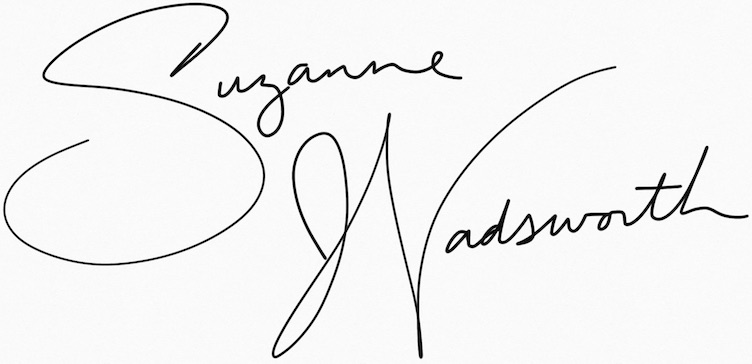 Suzanne
Wadsworth